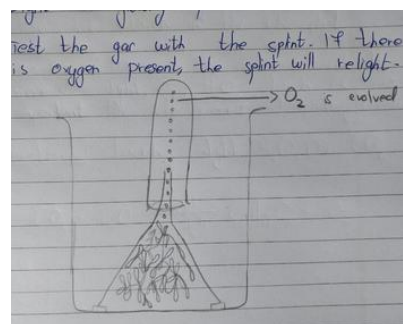 Test the gas with the splint. If there
is oxygen present, the splint will relight.
O2 is evolved